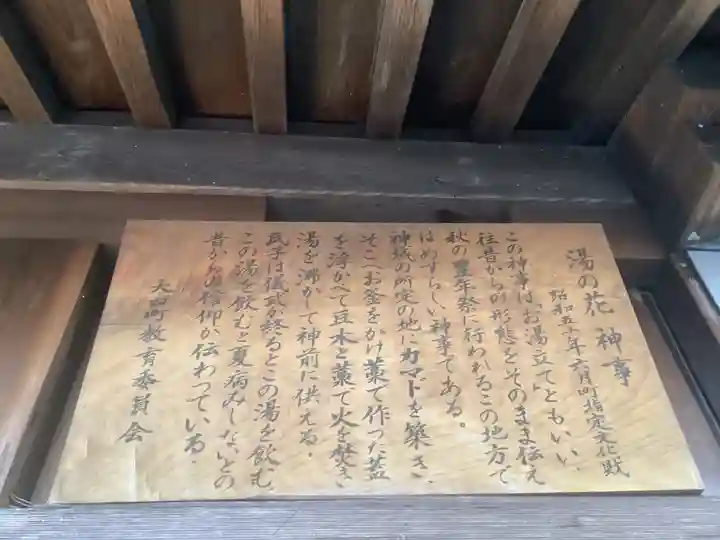 湯の花神事
昭和五十年六月町指定文化財
この神事は、お湯立てともいい、
往昔からの形態をそのまま伝え
秋の豊年祭に行われるこの地方で
はめずらしい神事である。
神域の所定の地にカマドを築き、
そこへお釜をかけ藁で作った蓋
を浮かべて豆木と藁で火を焚き
湯を沸かて神前に供える。
氏子は儀式が終るとこの湯を飲む、
この湯を飲むと夏病みしないとの
昔からの信仰が伝わっている。
町教育委員会